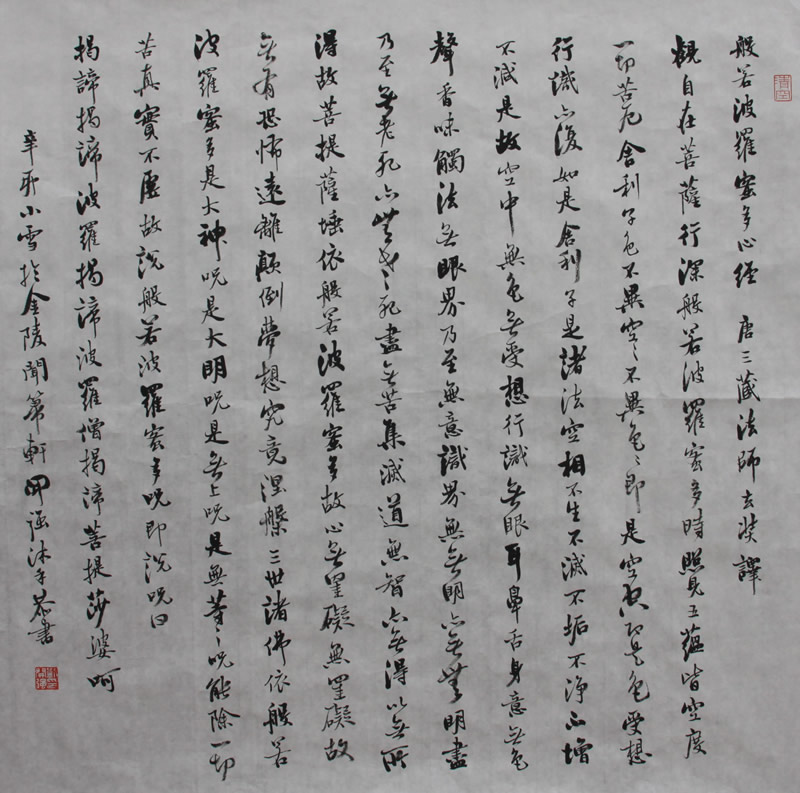 般若波羅蜜多心經 唐三藏法師玄奘譯
觀自在菩薩行深般若波羅蜜多時照見五蘊皆空度
一切苦厄舍利子色不異空々不異色々即是空空即是色受想
行識亦復如是舍利子是諸法空相不生不滅不垢不淨不增
不減是故空中無色無受想行識無眼耳鼻舌身意無色
聲香味觸法無眼界乃至無意識界無無明亦無無明盡
乃至無老死亦無老死盡無苦集滅道無智亦無得以無所
得故菩提薩埵依般若波羅蜜多故心無罣礙無罣礙故
無有恐怖遠離顛倒夢想究竟涅槃三世諸佛依般若
波羅蜜多是大神咒是大明咒是無上咒是無等々咒能除一切
苦真實不虛故說般若波羅蜜多咒即說咒曰
揭諦揭諦波羅揭諦波羅僧揭諦菩提莎婆呵
辛卯小雪於金陵聞軒強沐手恭書